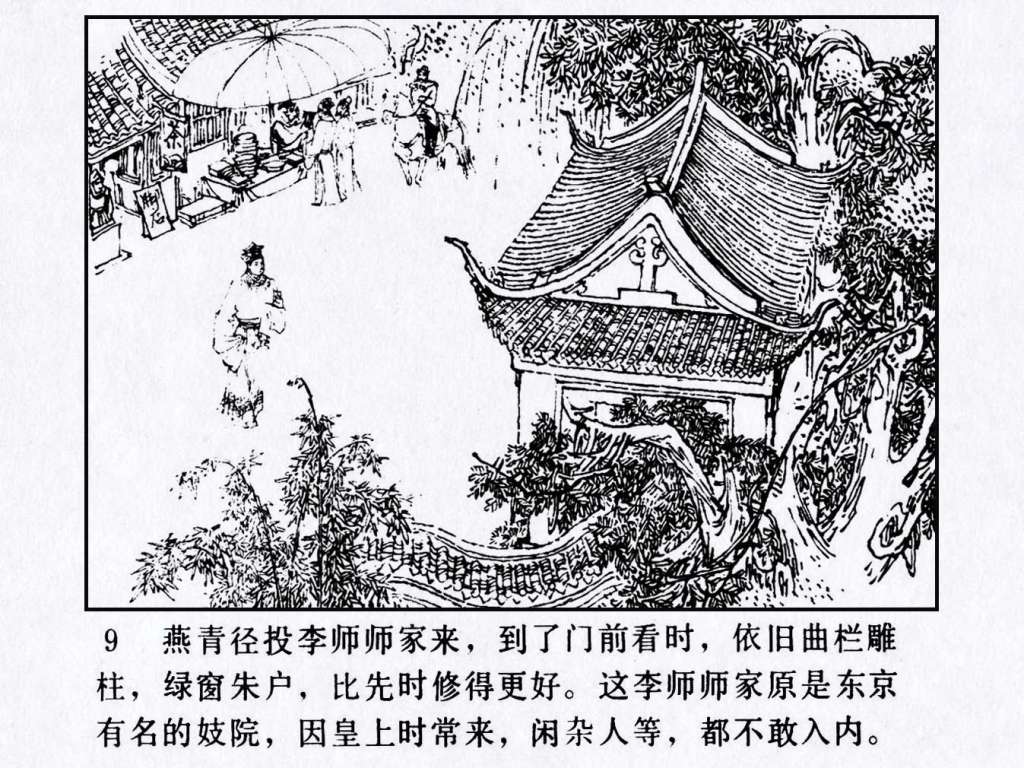 茶
9 燕青径投李师师家来，到了门前看时，依旧曲栏雕
柱，绿窗朱户，比先时修得更好。这李师师家原是东京
有名的妓院，因皇上时常来，闲杂人等，都不敢入内。